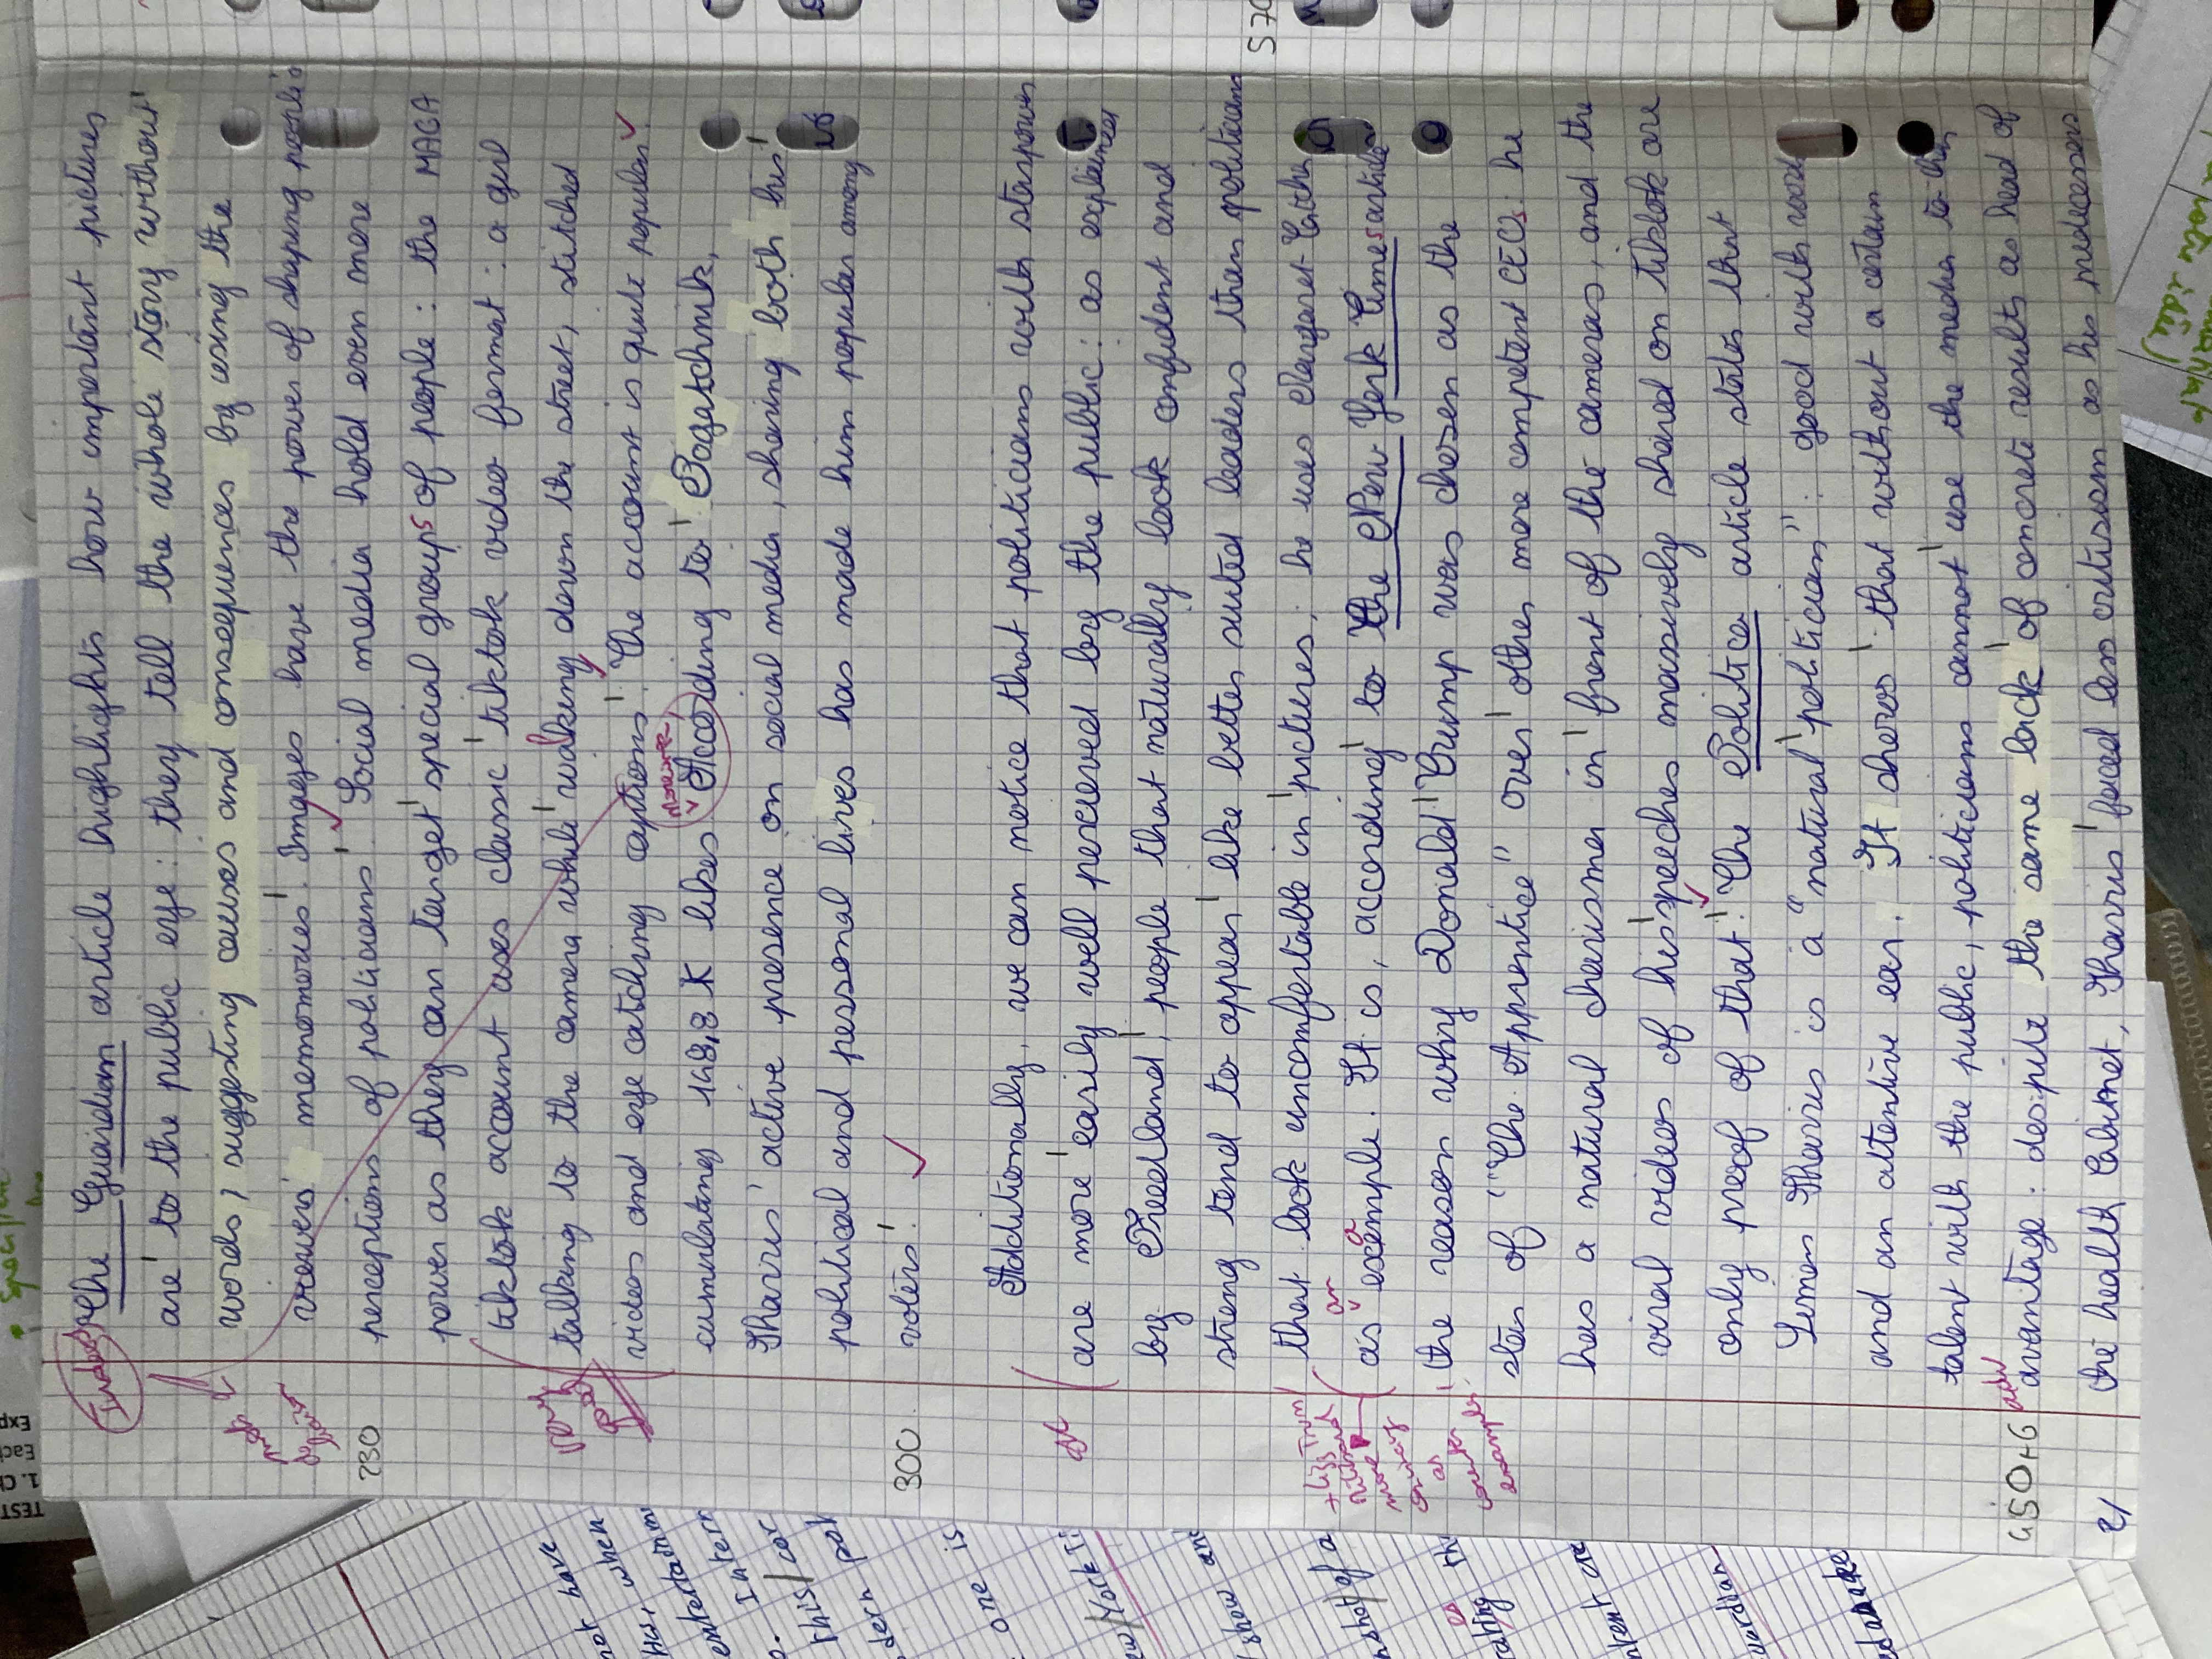 The Guardian article highlights how important pictures
are to the public eye: they tell the whole story without
words, suggesting causes and consequences by using the
viewers' memomories. Images have the power of shaping
perceptions of politicians. Social media hold even more
power as they can target special groups of people: the MAGA
tiktok account uses classic tiktok video format: a girl
talking to the camera while walking down the street, stitched
videos and eye catching captions. The account is quite popular
cumulating 148,8 K likes. Moreover According to Pagatchnik,
Harris' active presence on social media, sharing both his
political and personal lives has made him popular among
voters.
Additionally, we can notice that politicians with starpower
are more easily well perceived by the public: as explained
by Freedland, people that naturally look confident and
strong tend to appear like better suited leaders than politicians
that look uncomfortable in pictures; he uses Margaret Thatcher
as an example. It is, according to the New York Times article
the reason why Donald Trump was chosen as the
star of "The Apprentice" over other more competent CEOs: he
has a natural charisma in front of the cameras, and the
viral videos of his speeches massively shared on tiktok are
only proof of that. The Politico article states that
Simon Harris is a "natural politician": good with words
and an attentive ear. It shows that without a certain
talent with the public, politicians cannot use the media to their
advantage: despite the same lack of concrete results as head of
the health Cabinet, Harris faced less critisism as his predecessors
230
300
450+6
2/
570
not have
when
entertainm
Intern
this/
one is
show and
TEST
1. C
Eac
Exp